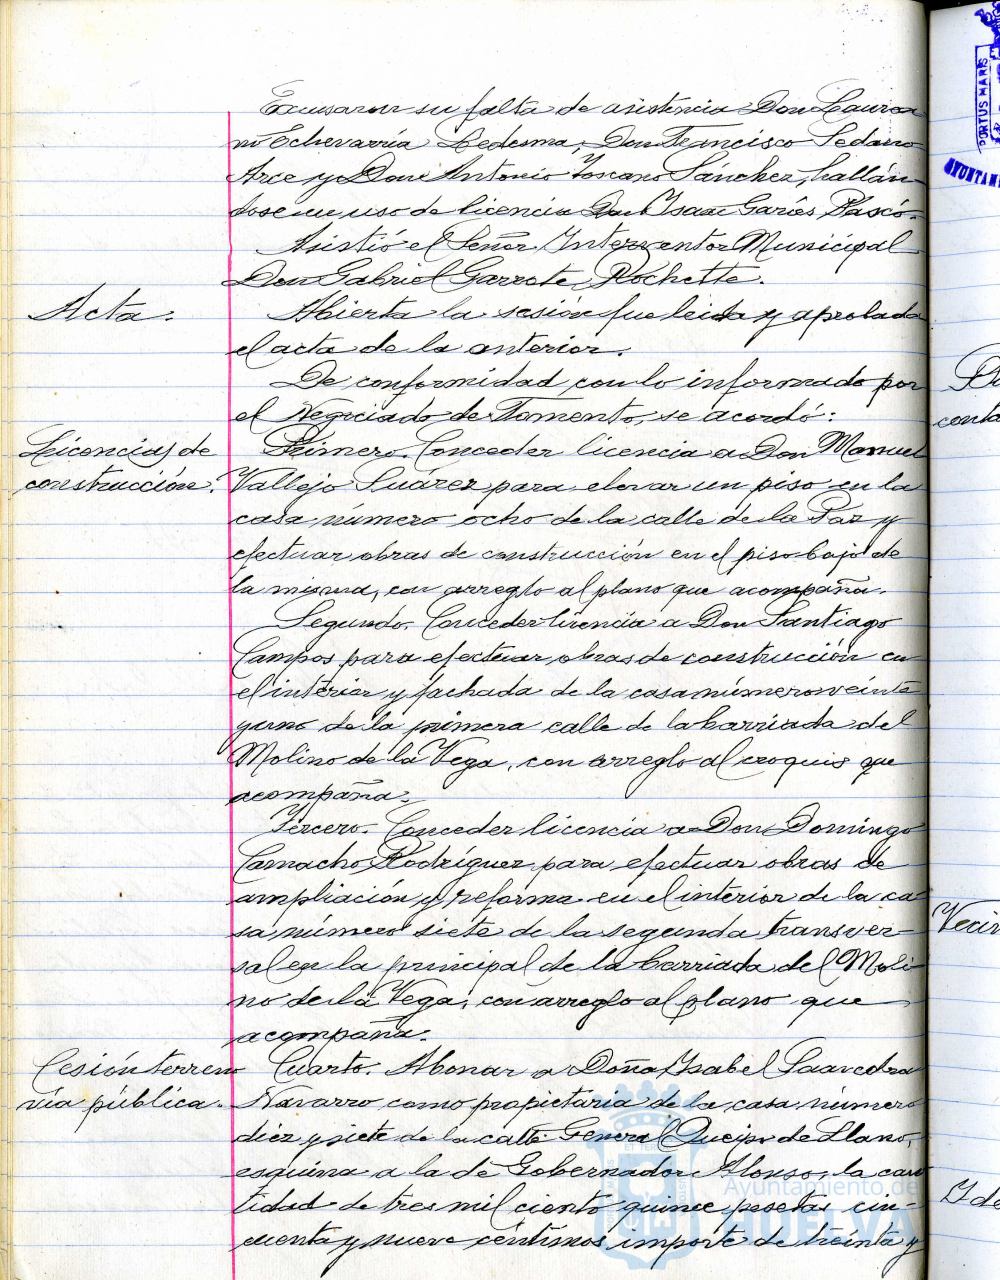 Excusaron su falta de asistencia Don Laurea
no Echevarría Ledesma, Don Francisco Sedano
Arce y Don Antonio Toscano Sánchez, hallán-
dose en uso de licencia Don Isaac Garcés Rascó.
Asistió el Señor Interventor Municipal
Don Gabriel Garrote Rochette.
Acta.
Abierta la sesión fue leida y aprobada
el acta de la anterior.
De conformidad con lo informado por
el Negociado de Fomento, se acordó:
Licencias de
construcción.
Primero. Conceder licencia a Don Manuel
Vallejo Suárez para elevar un piso en la
casa número ocho de la calle de la Paz y
efectuar obras de construcción en el piso bajo de
la misma, con arreglo al plano que acompaña.
Segundo. Conceder licencia a Don Santiago
Campos para efectuar obras de construcción en
el interior y fachada de la casa número veinte
y uno de la primera calle de la barriada del
Molino de la Vega, con arreglo al croquis que
acompaña.
Tercero. Conceder licencia a Don Domingo
Camacho Rodríguez para efectuar obras de
ampliación y reforma en el interior de la ca-
sa número siete de la segunda transver-
sal en la principal de la barriada del Moli-
no de la Vega, con arreglo al plano que
acompaña.
Cesión terreno
vía pública.
Cuarto. Abonar a Doña Isabel Saavedra
Navarro como propietaria de la casa número
diez y siete de la calle General Queipo de Llano,
esquina a la de Gobernador Alonso, la can
tidad de tres mil ciento quince pesetas cin-
cuenta y nueve céntimos importe de treinta y
Ayuntamiento de
HUELVA
PORTUS MARIS